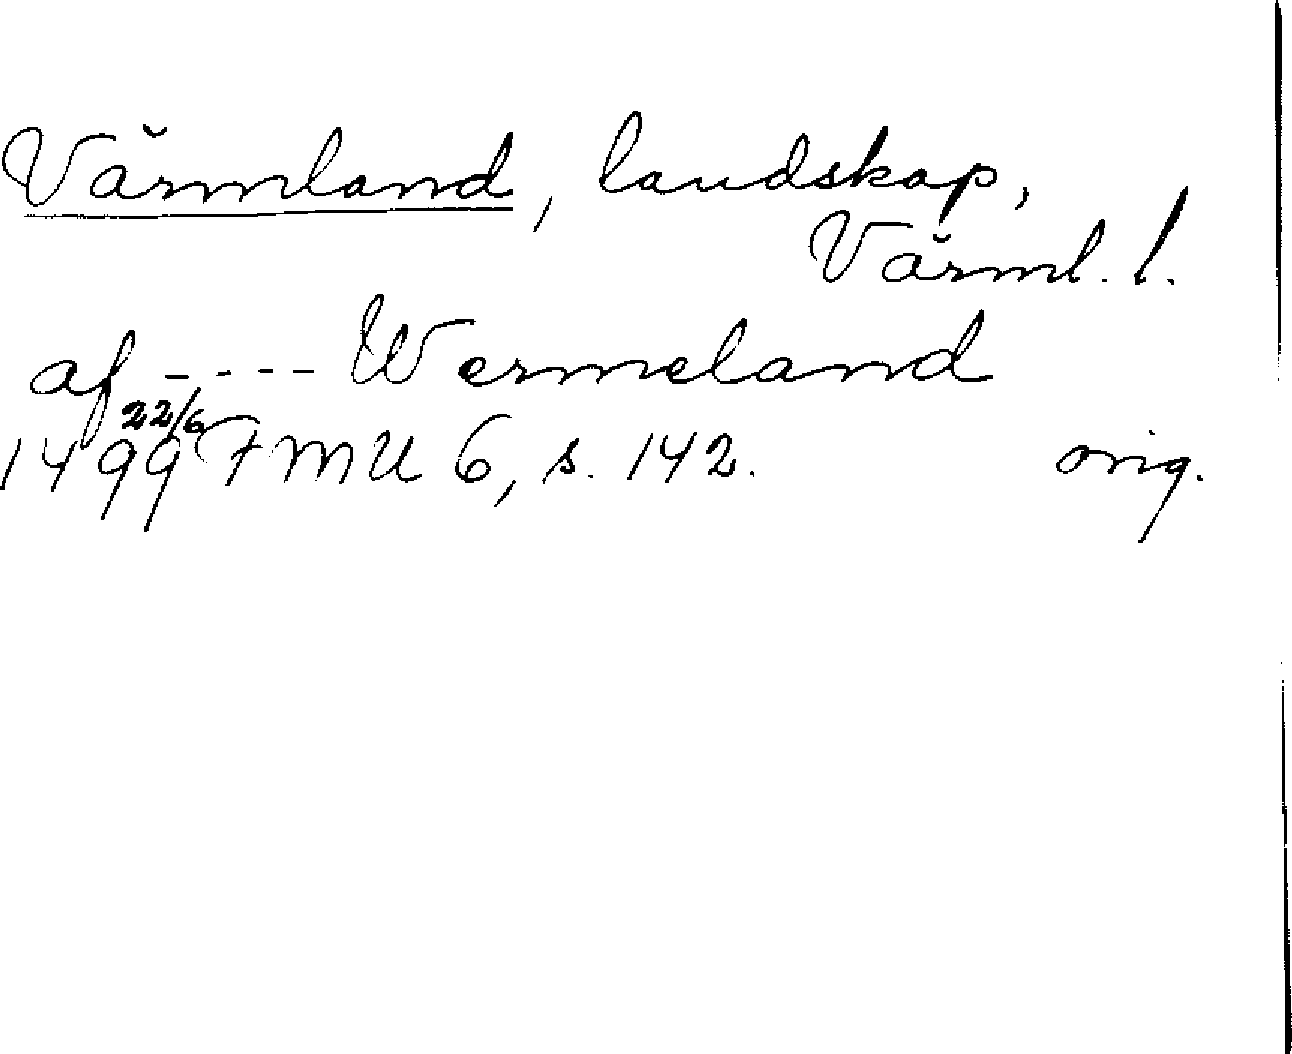 Värmland, landskap,
Värml. l.
af ----- Wermeland
1499 22/6 FMU 6, s. 142. orig.